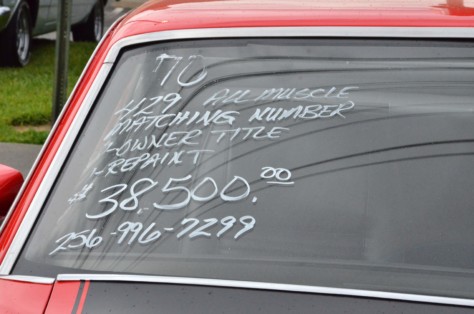 '70
429 ALL MUSCLE
MATCHING NUMBER
1-OWNER TITLE
1-REPAINT
$38,500.00
256-996-7299